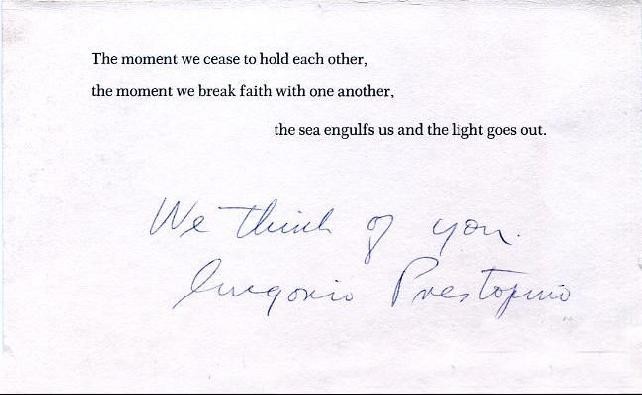 The moment we cease to hold each other,
the moment we break faith with one another,
the sea engulfs us and the light goes out.
We think of you.
Gregorio Prestopino